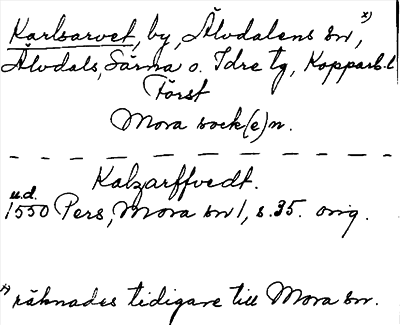 Karlsarvet, by, Älvdalens sn, x)
Älvdals, Särna o. Idre tg, Kopparb. l
Först
Mora sock(e)n.
Kalzarffvedt.
u.d.
1550 Pers, Mora sn 1, s. 35. orig.
x) räknades tidigare till Mora sn.